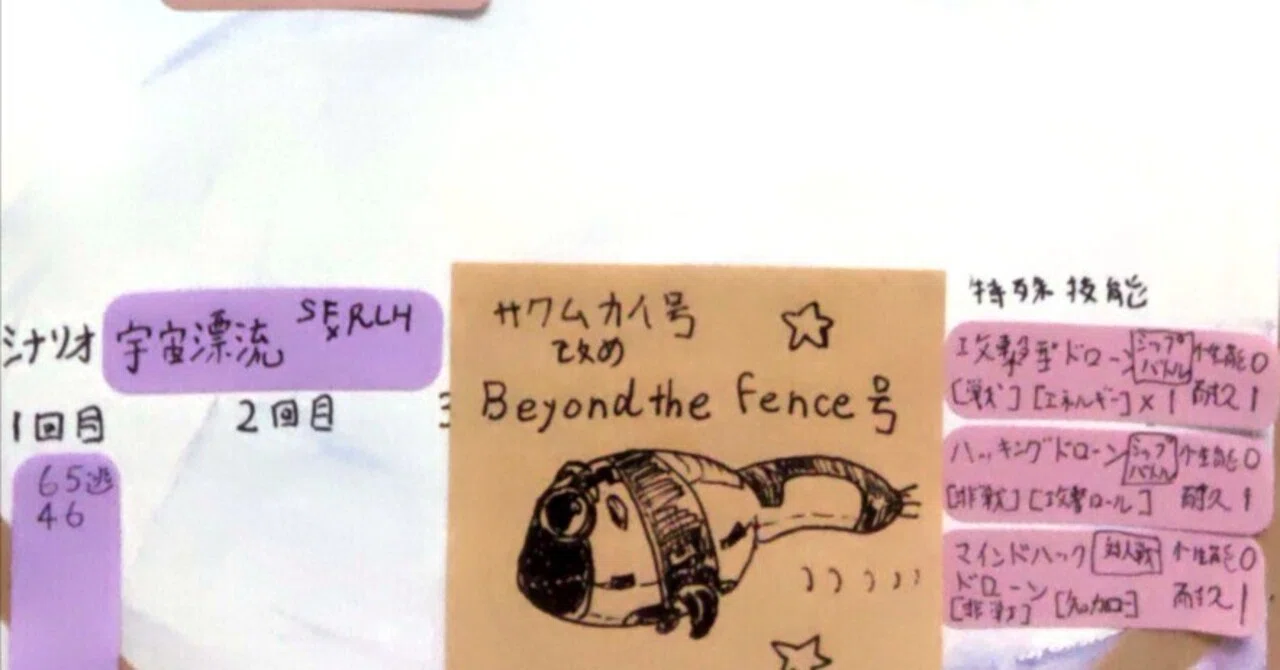 シナリオ
宇宙漂流
SERCH
1回目
2回目
65逃
46
サワムカイ号
改め
Beyond the Fence号
特殊技能
攻撃型ドローン シップバトル 性能0
[戦] [エネルギー]×1 耐久1
ハッキングドローン シップバトル 性能0
[非戦] [攻撃ロール] 耐久1
マインドハック 対人戦 性能0
ドローン 耐久1
[非戦]